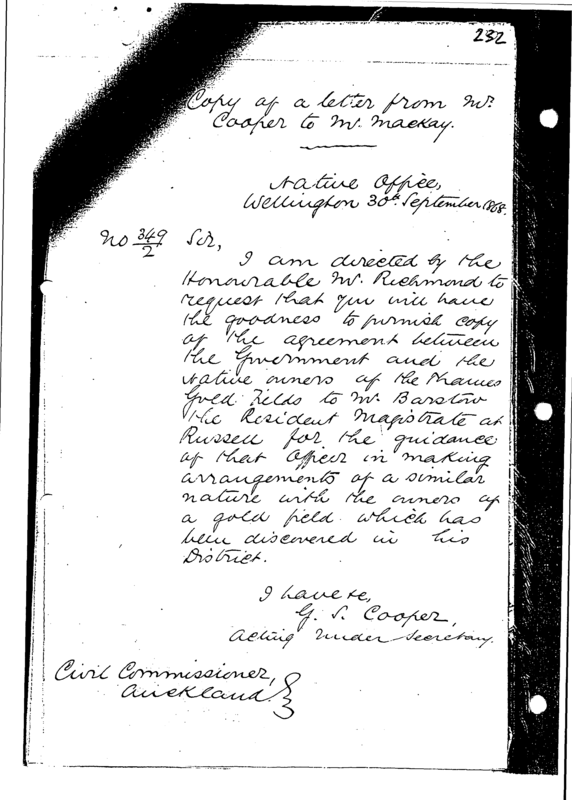 232
Copy of a letter from Mr.
Cooper to Mr. Mackay.
Native Office,
Wellington 30th September 1868.
No 349/2 Sir,
I am directed by the
Honourable Mr. Richmond to
request that you will have
the goodness to furnish copy
of the agreement between
the Government and the
Native owners of the Thames
Gold Fields to Mr. Barstow
the Resident Magistrate at
Russell for the guidance
of that Officer in making
arrangements of a similar
nature with the owners of
a gold field which has
been discovered in his
District.
I have &c,
G. S. Cooper,
Acting Under Secretary.
Civil Commissioner,
Auckland.